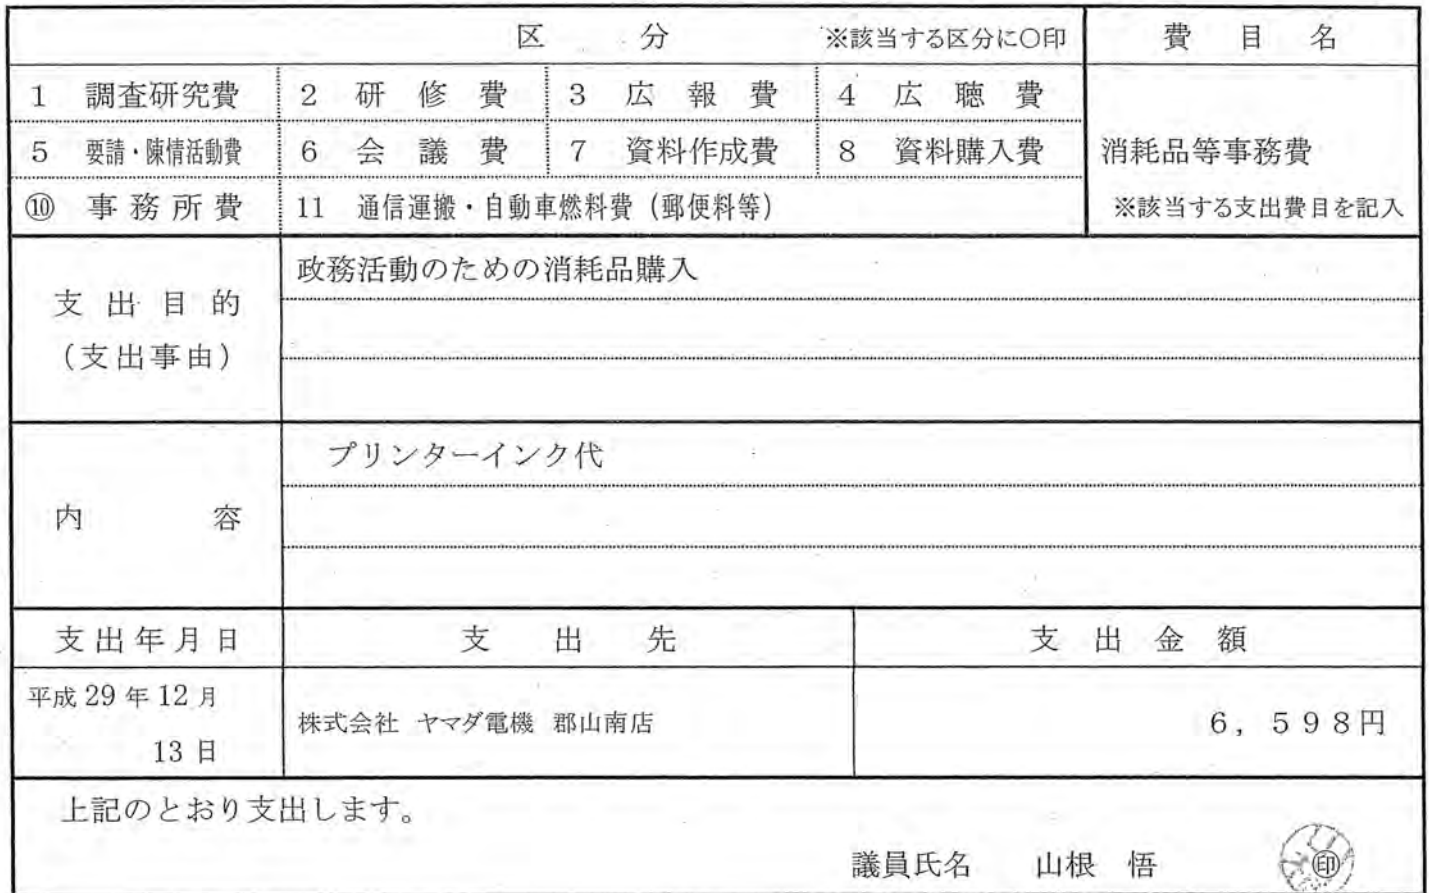 区分 ※該当する区分に○印 費目名
1 調査研究費 2 研修費 3 広報費 4 広聴費
5 要請・陳情活動費 6 会議費 7 資料作成費 8 資料購入費 消耗品等事務費
⑩ 事務所費 11 通信運搬・自動車燃料費（郵便料等） ※該当する支出費目を記入
支出目的
（支出事由）
政務活動のための消耗品購入
内容
プリンターインク代
支出年月日 支出先 支出金額
平成29年12月
13日
株式会社 ヤマダ電機 郡山南店
6，598円
上記のとおり支出します。
議員氏名 山根 悟 ㊞